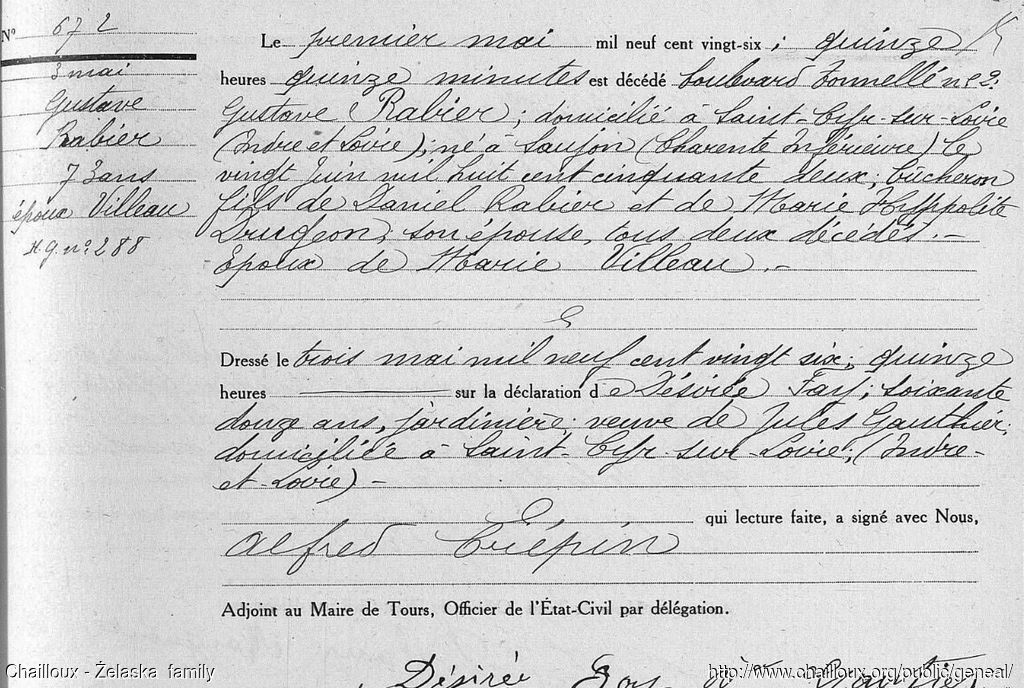 N° 672
3 mai
Gustave
Rabier
73 ans
époux Villeau
H.G. n° 288
Le premier mai mil neuf cent vingt-six ; quinze
heures quinze minutes est décédé boulevard Tonnellé n° 2
Gustave Rabier ; domicilié à Saint-Cyr-sur-Loire
(Indre et Loire) ; né à Saujon (Charente Inférieure) le
vingt Juin mil huit cent cinquante deux ; bucheron
fils de Daniel Rabier et de Marie Hyppolite
Drugeon, son épouse, tous deux décédés. —
Epoux de Marie Villeau. —
Dressé le trois mai mil neuf cent vingt six ; quinze
heures sur la déclaration de Désirée ; soixante
douze ans, jardinière ; veuve de Jules Gauthier ;
domiciliée à Saint-Cyr-sur-Loire ; (Indre-
et-Loire) —
qui lecture faite, a signé avec Nous,
Alfred Crépin
Adjoint au Maire de Tours, Officier de l'État-Civil par délégation.
Désirée
Chailloux - Żelaska family
http://www.chailloux.org/public/geneal/